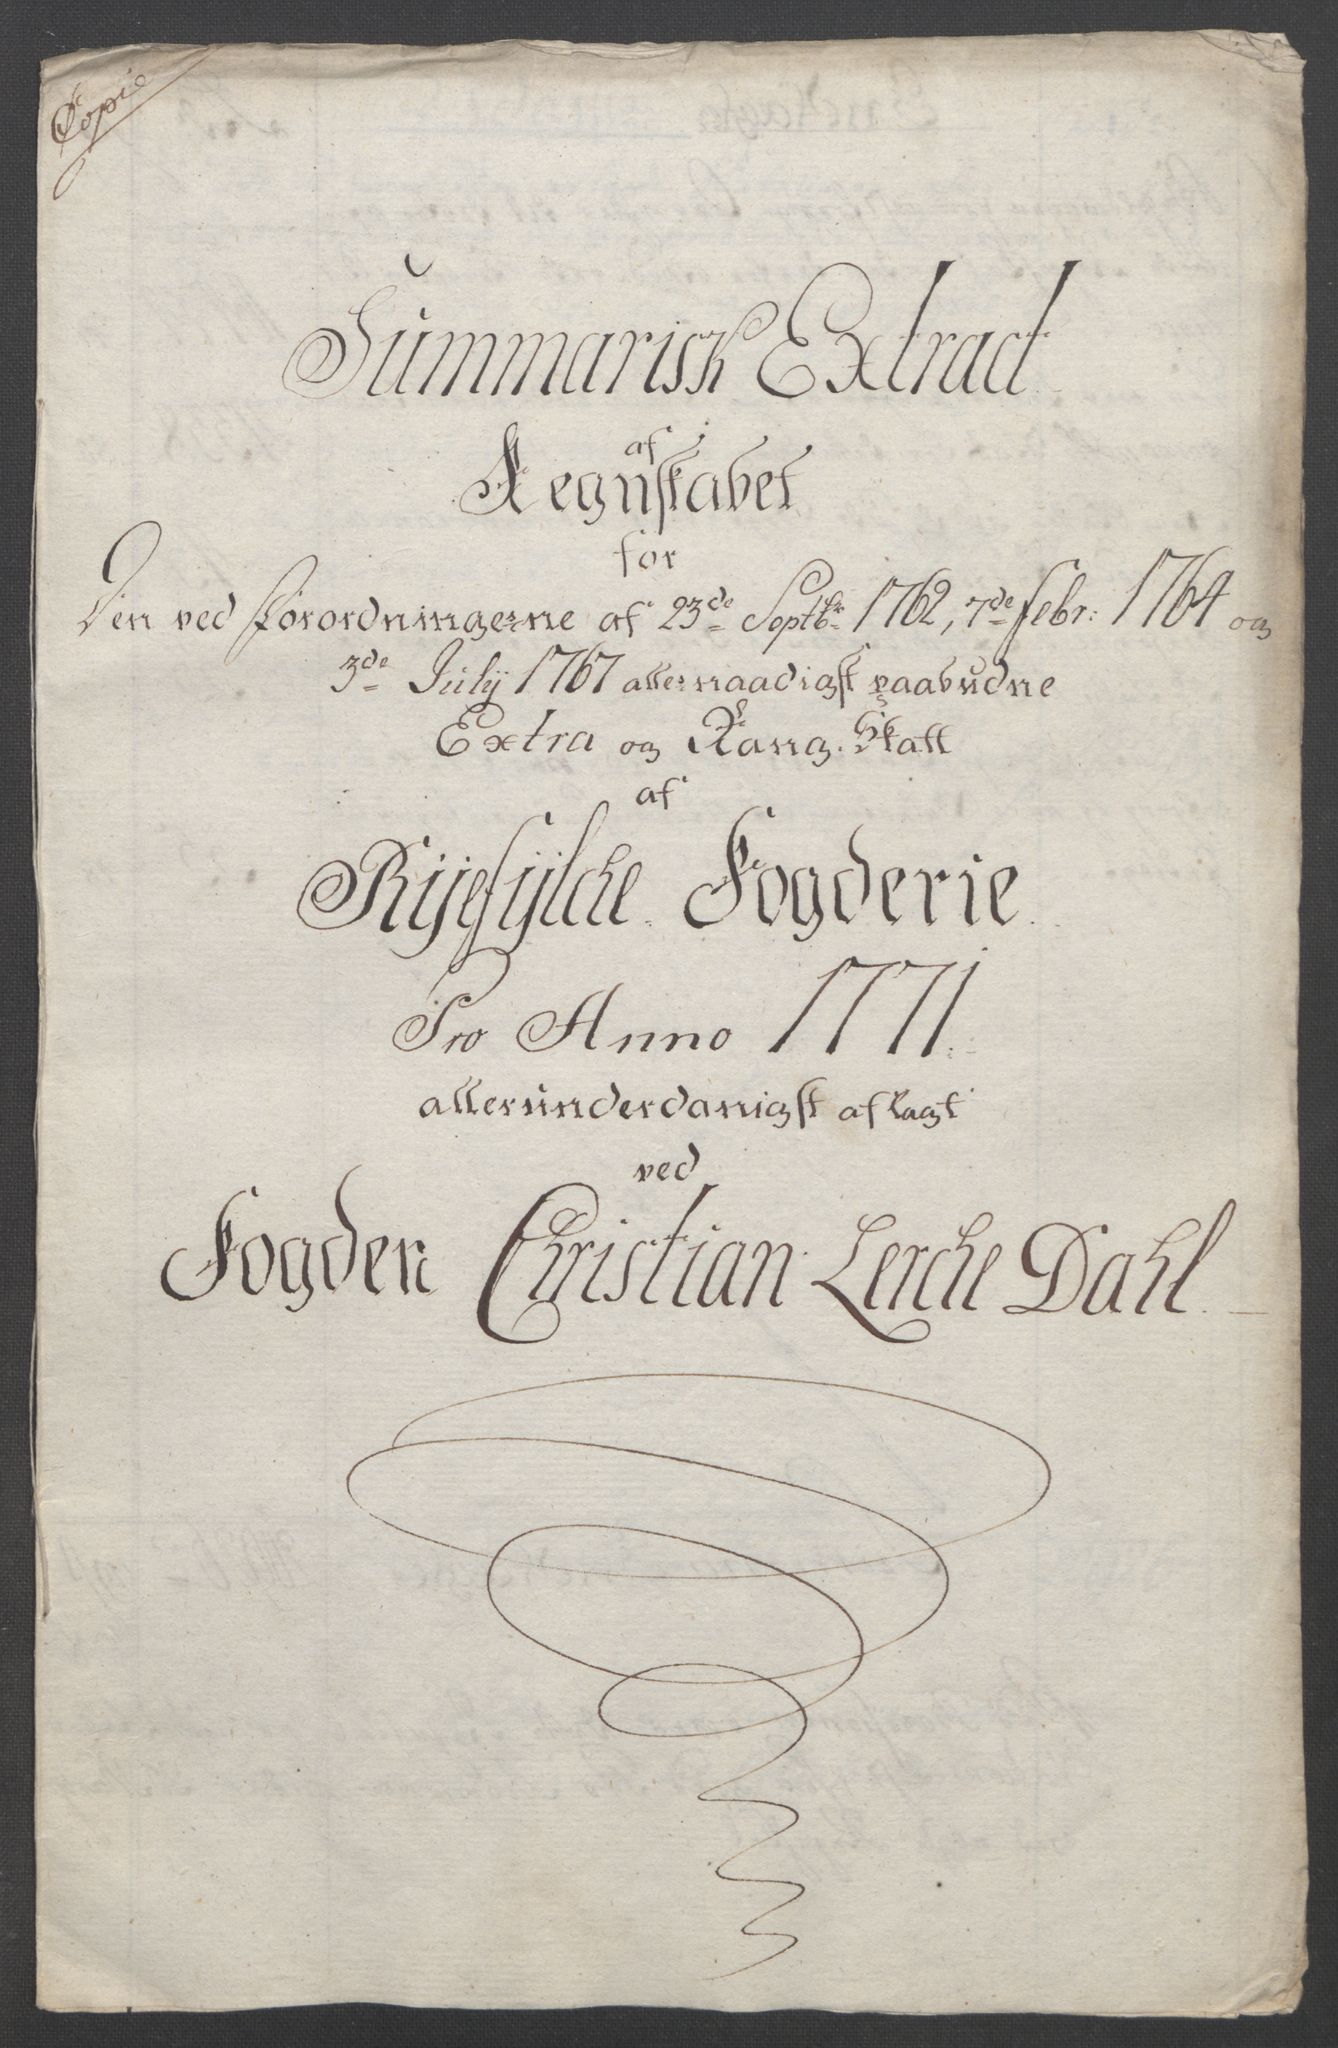 Copie
Summarisk Extract
af
Regnskabet
for
Den ved Forordningerne af 23de Septbr 1762, 7de Febr: 1764 og
3de Julij 1767 allernaadigst paabudne
Extra og Rang-Skatt
af
Rÿefÿlche Fogderie
Pro Anno 1771
allerunderdanigst aflagt
ved
Fogden Christian Lerche Dahl